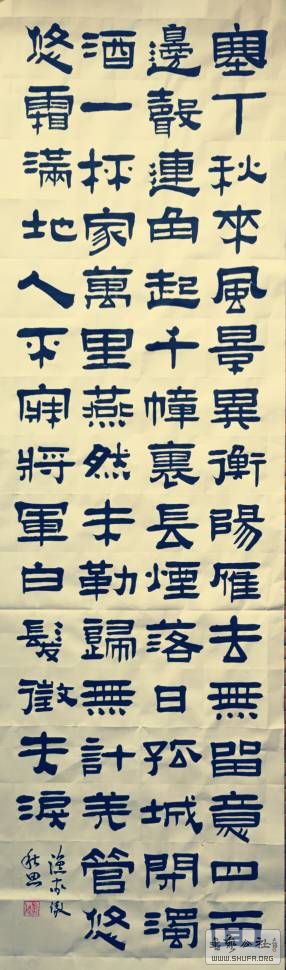 塞下秋來風景異衡陽雁去無留意四面
邊聲連角起千幢裏長煙落日孤城閉濁
酒一杯家萬里燕然未勒歸無計羌管悠
悠霜滿地人不寐將軍白髮徵夫淚
漁家傲
秋思
WWW.SHUFA.ORG